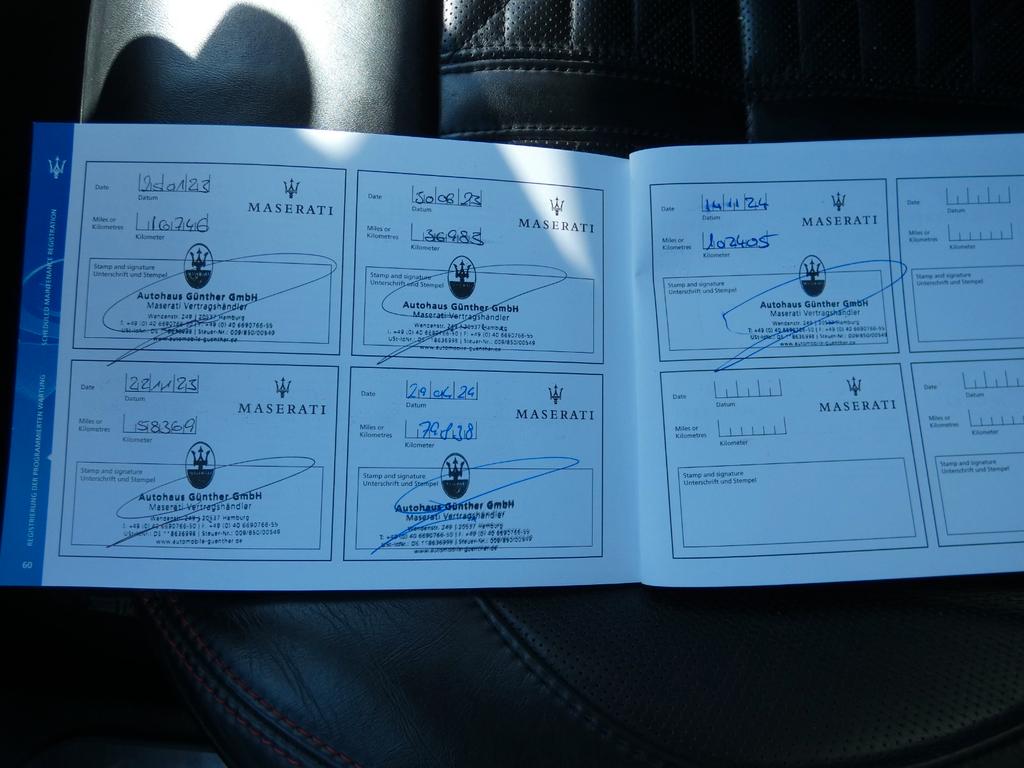 SCHEDULED MAINTENANCE REGISTRATION
REGISTRIERUNG DER PROGRAMMIERTEN WARTUNG
60
Date 25 01 23
Datum
MASERATI
Miles or
Kilometres 16746
Kilometer
Stamp and signature
Unterschrift und Stempel
Autohaus Günther GmbH
Maserati Vertragshändler
Wendenstr. 249 | 20537 Hamburg
T: +49 (0) 40 6690766-50 | F: +49 (0) 40 6690766-55
8636998 | Steuer-Nr.: 009/850/00549
www.automobile-guenther.de
Date 22 11 23
Datum
MASERATI
Miles or
Kilometres 58369
Kilometer
Stamp and signature
Unterschrift und Stempel
Autohaus Günther GmbH
Maserati Vertragshändler
Wendenstr. 249 | 20537 Hamburg
T: +49 (0) 40 6690766-50 | F: +49 (0) 40 6690766-55
8636998 | Steuer-Nr.: 009/850/00549
www.automobile-guenther.de
Date 30 06 23
Datum
MASERATI
Miles or
Kilometres 36983
Kilometer
Stamp and signature
Unterschrift und Stempel
Autohaus Günther GmbH
Maserati Vertragshändler
Wendenstr. 249 | 20537 Hamburg
T: +49 (0) 40 6690766-50 | F: +49 (0) 40 6690766-55
8636998 | Steuer-Nr.: 009/850/00549
www.automobile-guenther.de
Date 29 04 24
Datum
MASERATI
Miles or
Kilometres 79838
Kilometer
Stamp and signature
Unterschrift und Stempel
Autohaus Günther GmbH
Maserati Vertragshändler
Wendenstr. 249 | 20537 Hamburg
T: +49 (0) 40 6690766-50 | F: +49 (0) 40 6690766-55
8636998 | Steuer-Nr.: 009/850/00549
www.automobile-guenther.de
Date 14 11 24
Datum
MASERATI
Miles or
Kilometres 102405
Kilometer
Stamp and signature
Unterschrift und Stempel
Autohaus Günther GmbH
Maserati Vertragshändler
Wendenstr. 249 | 20537 Hamburg
T: +49 (0) 40 6690766-50 | F: +49 (0) 40 6690766-55
8636998 | Steuer-Nr.: 009/850/00549
www.automobile-guenther.de
Date
Datum
MASERATI
Miles or
Kilometres
Kilometer
Stamp and signature
Unterschrift und Stempel
Date
Datum
Miles or
Kilometres
Kilometer
Stamp and signature
Unterschrift und Stempel
Date
Datum
Miles or
Kilometres
Kilometer
Stamp and signature
Unterschrift und Stempel